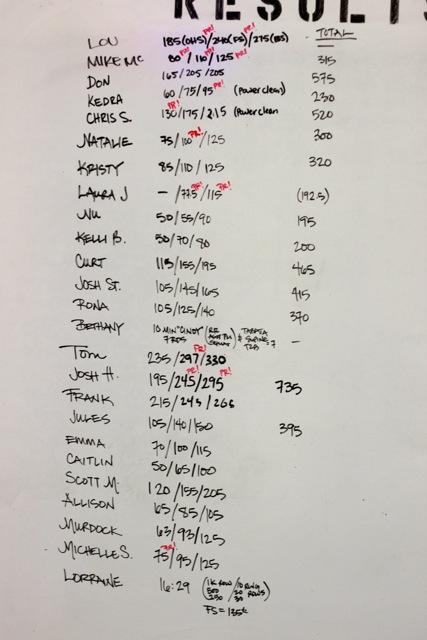 RESULTS
TOTAL
LOU 185(OHS)/240(FS)/275(BS) PR! PR!
MIKE Mc 80/110/125 PR! PR! PR! 315
DON 165/205/205 575
KEDRA 60/75/95 PR! (power clean) 230
CHRIS S. 130/175/215 PR! (power clean 520
NATALIE 75/100/125 PR! 300
KRISTY 85/110/125 320
LAURA J —/77.5/115 PR! PR! (192.5)
NU 50/55/90 195
KELLI B. 50/70/80 200
CURT 115/155/195 465
JOSH ST. 105/145/165 415
RONA 105/125/140 370
BETHANY 10 MIN "CINDY 7 RDS TABATA —
TOM 235/297/330 PR!
JOSH H. 195/245/295 PR! PR! 735
FRANK 215/245/265
JULES 105/140/150 395
EMMA 70/100/115
CAITLIN 50/65/100
SCOTT M. 120/155/205
ALLISON 65/85/105
MURDOCK 63/93/125
MICHELLE S. 75/95/125 PR!
LORRAINE 16:29 (1K ROW
FS = 135